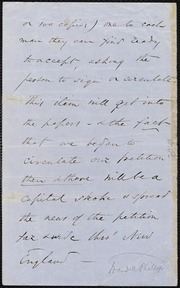 or two copies) one to each
man they can find ready
to accept, asking the
person to sign & circulate
this item will get into
the papers – & the fact
that we began to
circulate our petition
then & there will be a
capital stroke & spread
the news of the petition
far & wide thro' New
England –
Wendell Phillips